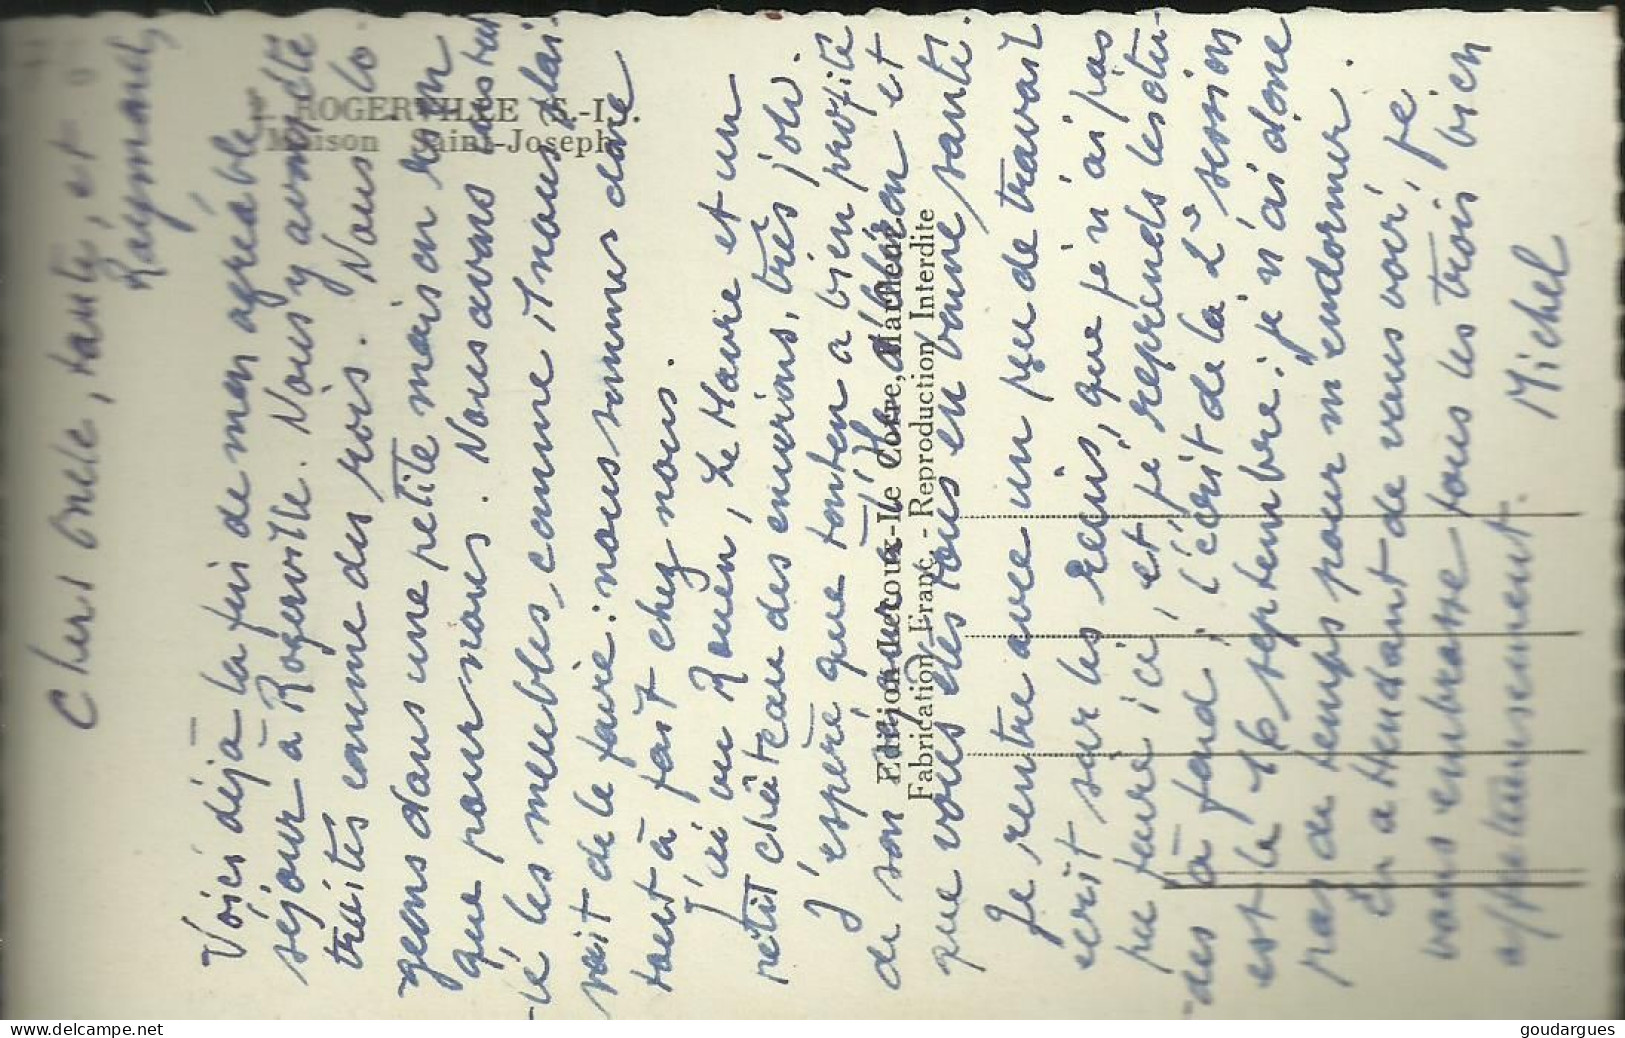 Chers Oncle, tante, et
Raymond,
Voici déjà la fin de mon agréable
séjour à Rogerville. Nous y avons été
traités comme des rois. Nous lo-
geons dans une petite maison rien
que pour nous. Nous avons
-té les meubles, comme il nous plai-
sait de le faire : nous sommes donc
tout à fait chez nous.
J'ai vu Rouen, Le Havre et un
petit château des environs, très joli.
J'espère que tonton a bien profité
de son séjour à et
que vous êtes tous en bonne santé.
Je rentre avec un peu de travail
écrit sur les reins, que je n'ai pas
pu faire ici, et je reprends les étu-
-des à fond ; l'écrit de la 2e session
est le 16 septembre ; je n'ai donc
pas de temps pour m'endormir.
En attendant de vous voir, je
vous embrasse tous les trois bien
affectueusement.
Michel
2 - ROGERVILLE S.-I.
Maison Saint-Joseph
Edition Lecoux-Le Coire, Marchand
Fabrication Franç. - Reproduction Interdite
goudargues